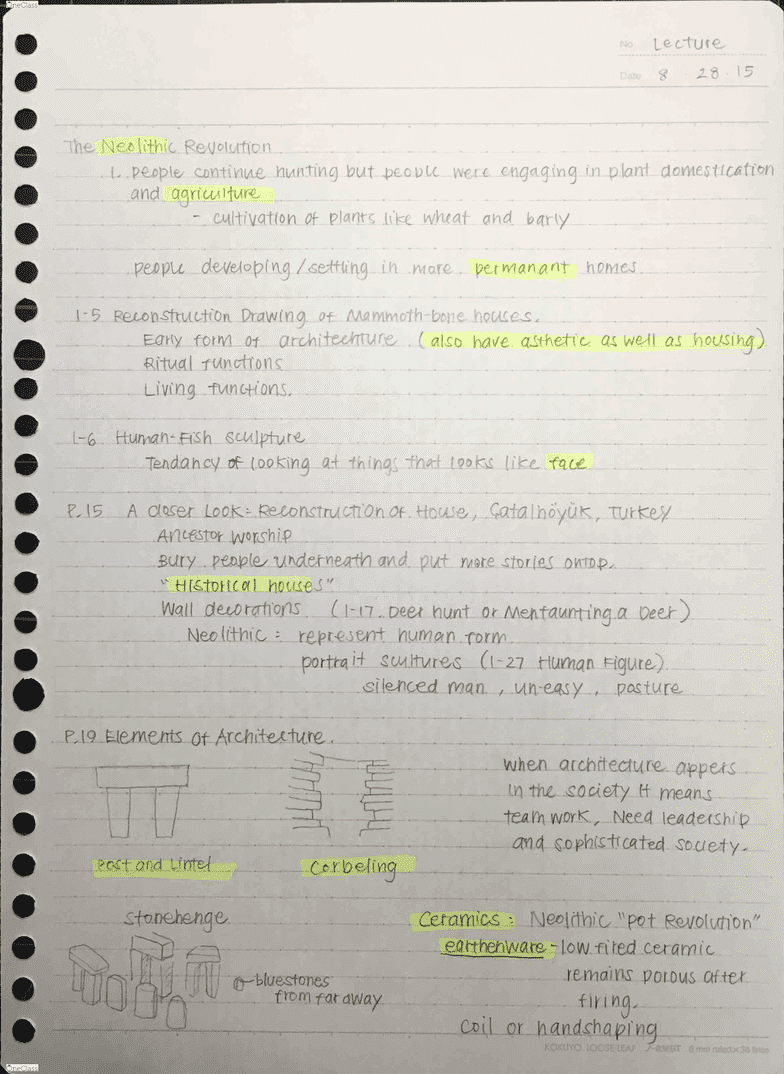 OneClass
No. Lecture
Date 8 · 28 · 15
The Neolithic Revolution
1. people continue hunting but people were engaging in plant domestication
and agriculture
- cultivation of plants like wheat and barly
people developing/settling in more permanant homes.
1-5 Reconstruction Drawing of Mammoth-bone houses.
Early form of architechture (also have asthetic as well as housing)
Ritual functions
Living functions.
1-6 Human-Fish sculpture
Tendancy of looking at things that looks like face
P.15 A closer Look: Reconstruction of House, Çatalhöyük, Turkey
Ancestor worship
Bury people underneath and put more stories ontop.
"Historical houses"
Wall decorations (1-17. Deer hunt or Mentaunting a Deer)
Neolithic: represent human form.
portrait scultures (1-27 Human Figure)
silenced man, un-easy, posture
P.19 Elements of Architecture.
when architecture appers
in the society it means
team work, Need leadership
and sophisticated society.
Post and Lintel
Corbeling
Stonehenge
bluestones
from far away
Ceramics: Neolithic "pot Revolution"
earthenware - low fired ceramic
remains porous after
firing.
coil or handshaping
KOKUYO LOOSE-LEAF 6 mm ruled x 36 lines
OneClass